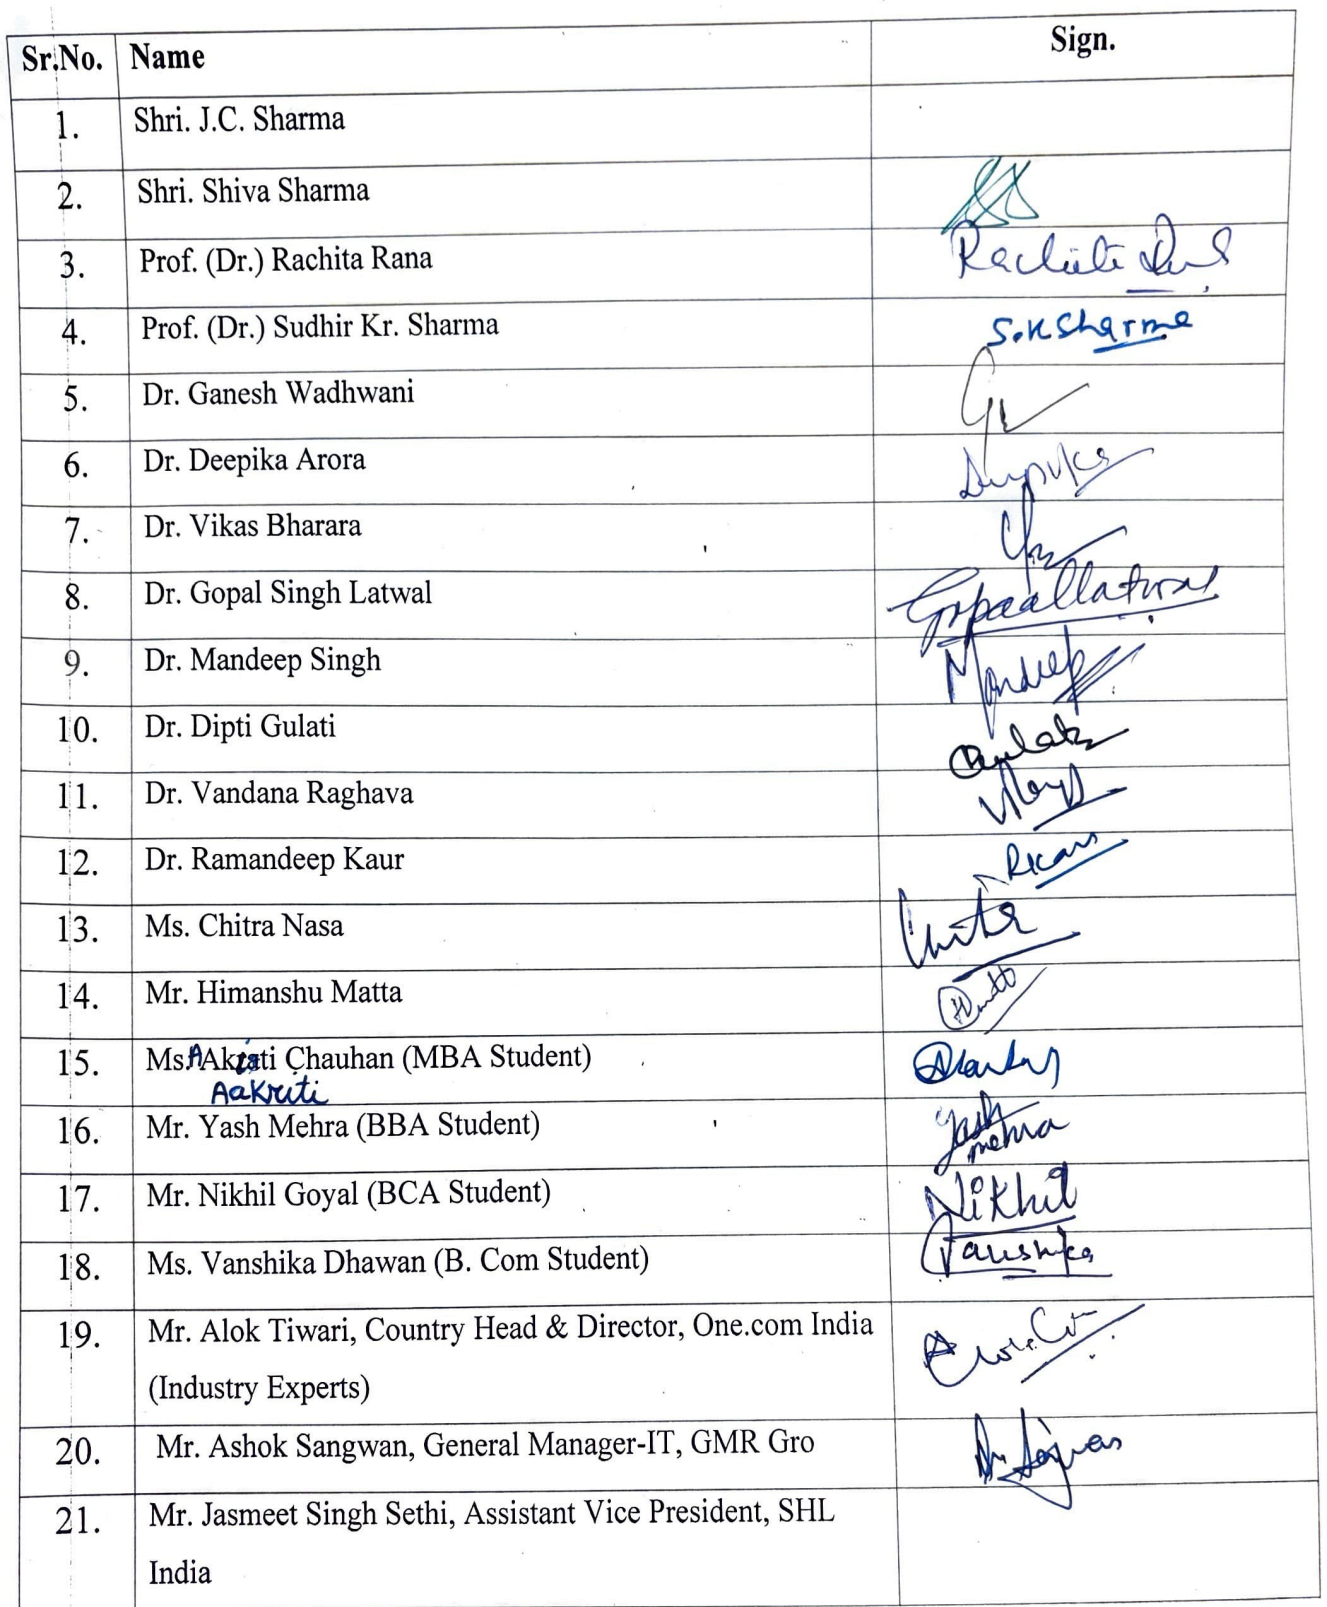 Sr.No. Name Sign.
1. Shri. J.C. Sharma
2. Shri. Shiva Sharma
3. Prof. (Dr.) Rachita Rana Rachita
4. Prof. (Dr.) Sudhir Kr. Sharma S.K Sharma
5. Dr. Ganesh Wadhwani
6. Dr. Deepika Arora
7. Dr. Vikas Bharara
8. Dr. Gopal Singh Latwal
9. Dr. Mandeep Singh Mandeep
10. Dr. Dipti Gulati
11. Dr. Vandana Raghava
12. Dr. Ramandeep Kaur
13. Ms. Chitra Nasa
14. Mr. Himanshu Matta
15. Ms. Chauhan (MBA Student)
Aakriti
16. Mr. Yash Mehra (BBA Student) Yash
mehra
17. Mr. Nikhil Goyal (BCA Student) Nikhil
18. Ms. Vanshika Dhawan (B. Com Student) Vanshika
19. Mr. Alok Tiwari, Country Head & Director, One.com India
(Industry Experts)
20. Mr. Ashok Sangwan, General Manager-IT, GMR Gro
21. Mr. Jasmeet Singh Sethi, Assistant Vice President, SHL
India